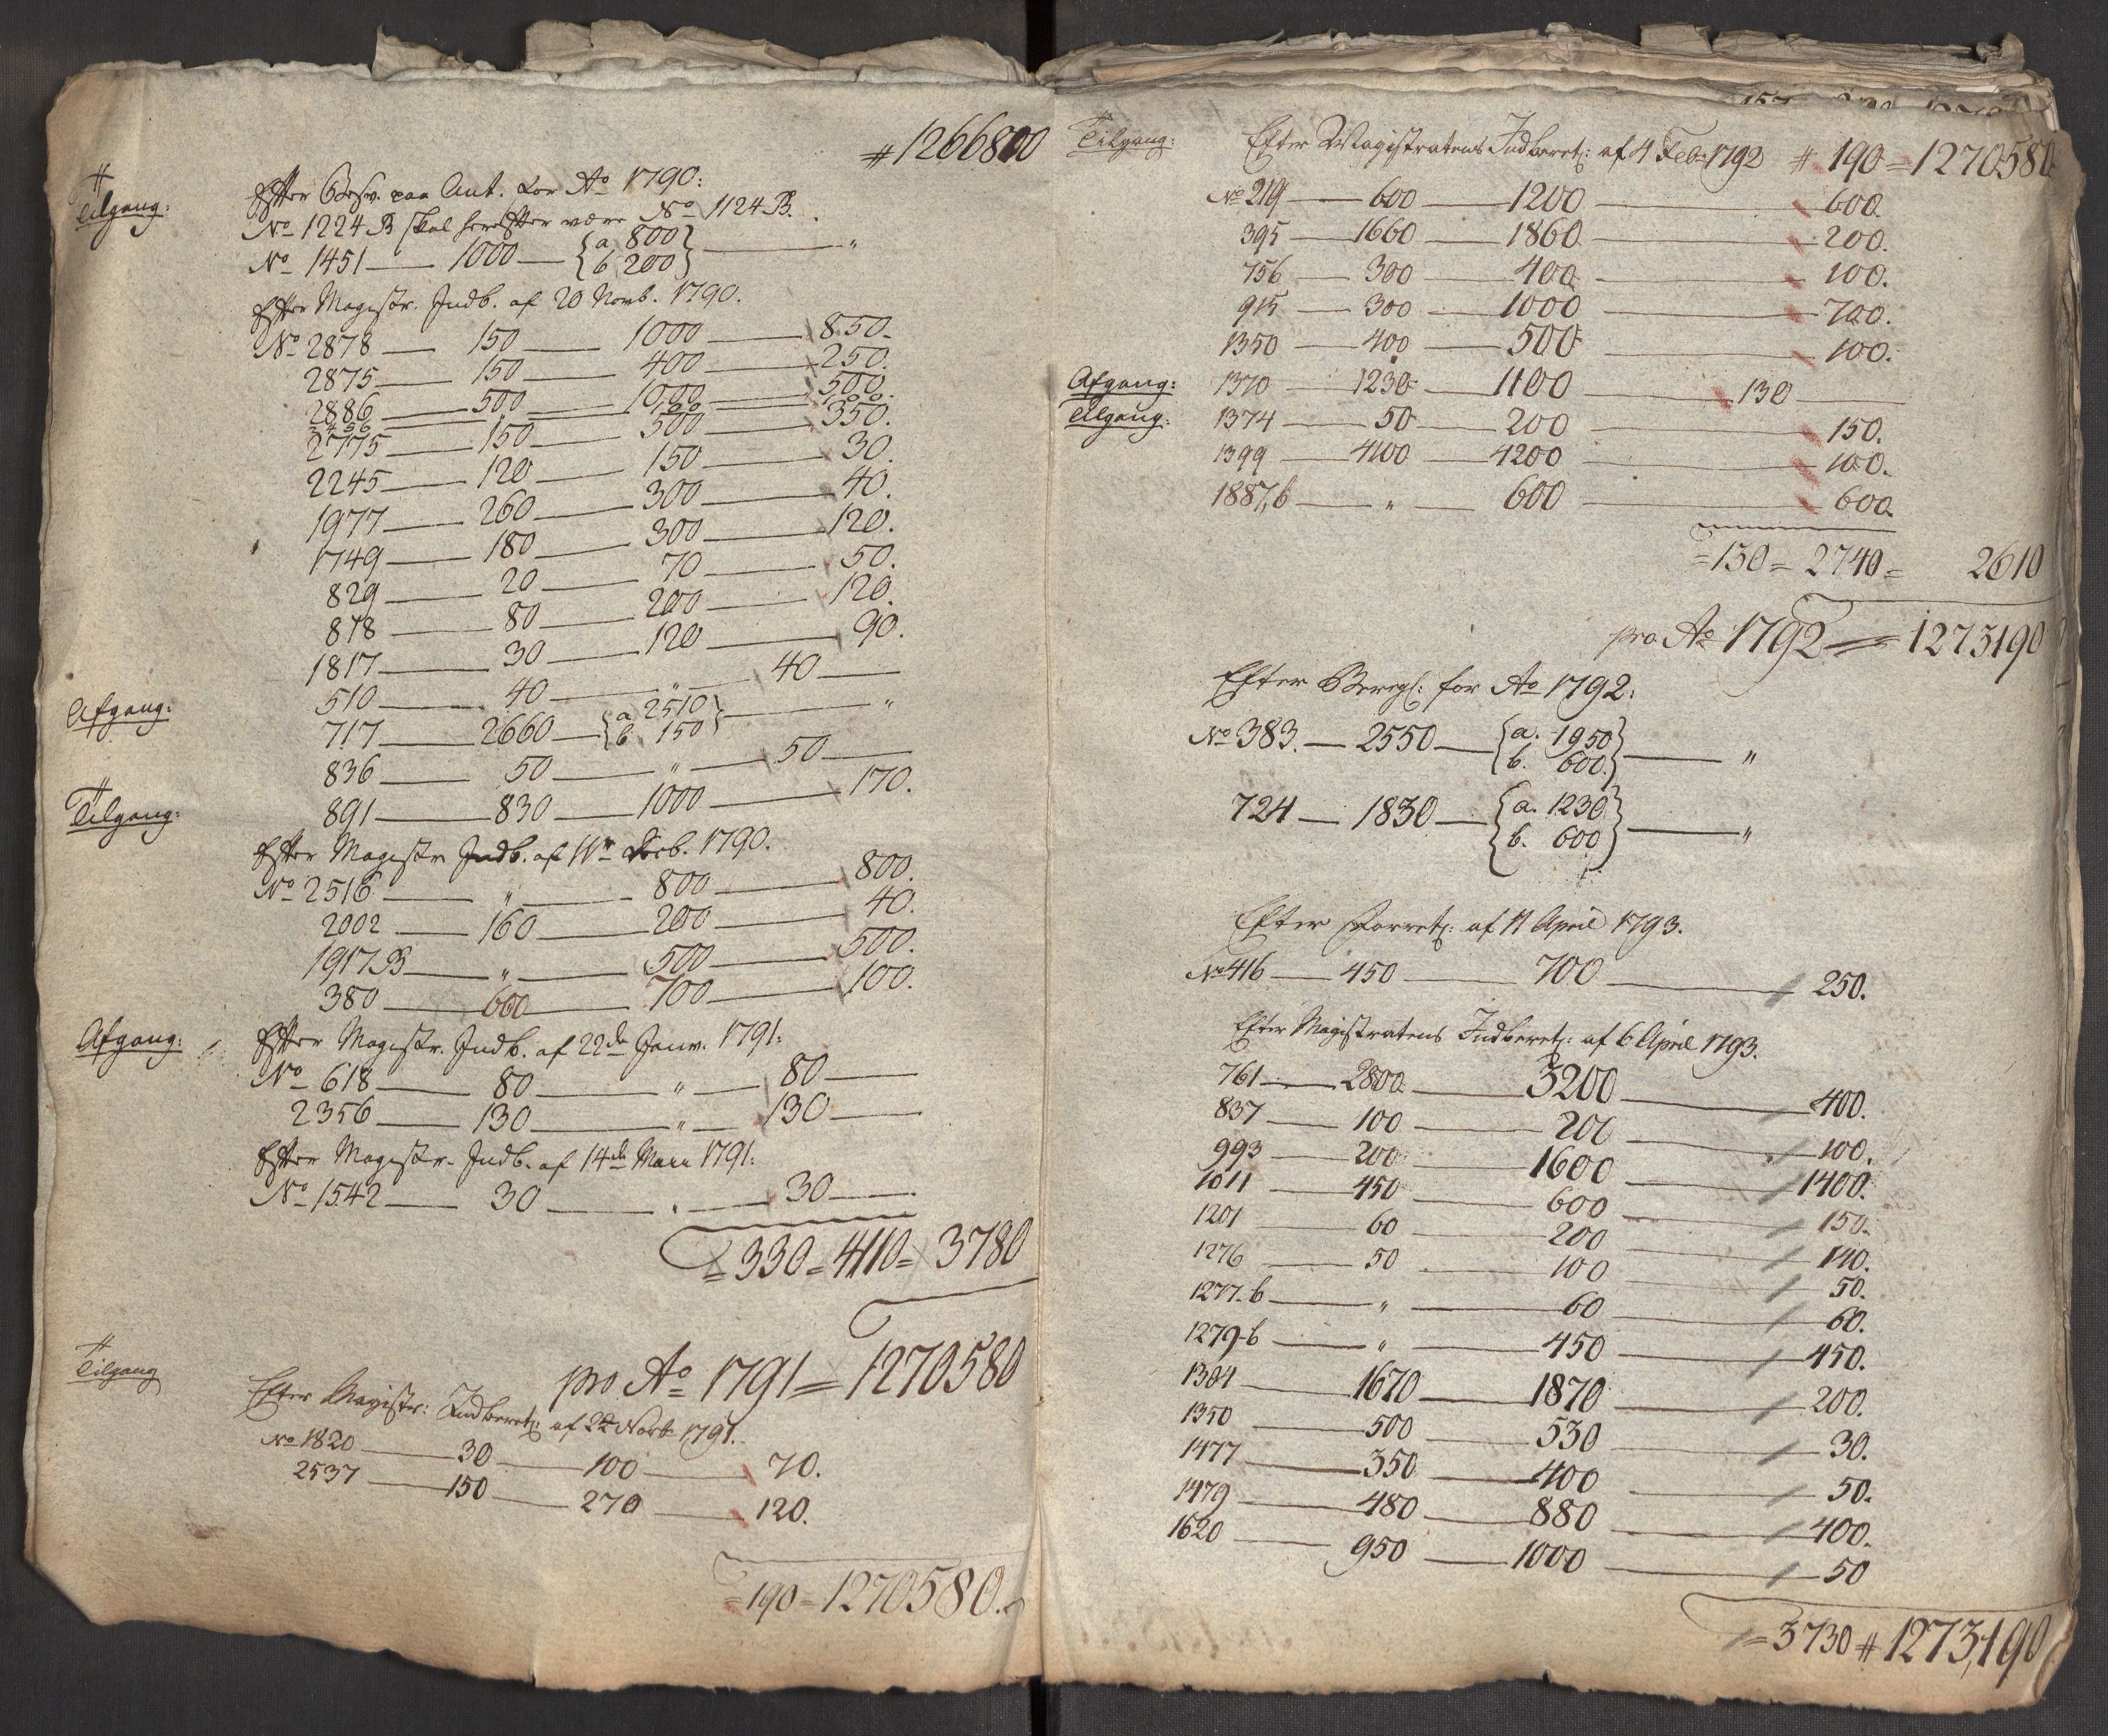 # 1266800
#
Tilgang:
Efter Besv. paa Ant. for Ao 1790:
No 1224 B skal herefter være No 1124 B.
No 1451 — 1000 — {a 800 b 200} — "
Efter Magistr. Indb. af 20 Novb. 1790.
No 2878 — 150 — 1000 — 850.
2875 — 150 — 400 — 250.
2886 — 500 — 1000 — 500.
2775 — 150 — 500 — 350.
2245 — 120 — 150 — 30.
1977 — 260 — 300 — 40.
1749 — 180 — 300 — 120.
829 — 20 — 70 — 50.
878 — 80 — 200 — 120.
1817 — 30 — 120 — 90.
Afgang:
510 — 40 — " — 40 —
717 — 2660 — {a 2510 b 150} — "
836 — 50 — " — 50 —
#
Tilgang:
891 — 830 — 1000 — 170.
Efter Magistr Indb. af 11te Decb. 1790.
No 2516 — " — 800 — 800.
2002 — 160 — 200 — 40.
1917 B — " — 500 — 500.
380 — 600 — 700 — 100.
Afgang:
Efter Magistr. Indb. af 22de Janv. 1791:
No 618 — 80 — " — 80 —
2356 — 130 — " — 130 —
Efter Magistr. Indb. af 14de Maii 1791:
No 1542 — 30 — " — 30 —
= 330 = 4110 = 3780
pro Ao 1791 = 1270580
#
Tilgang
Efter Magistr: Indberet: af 22 Novb 1791.
No 1820 — 30 — 100 — 70.
2537 — 150 — 270 — 120.
= 190 = 1270580.
Tilgang:
Efter Magistratens Indberet: af 4 Feb: 1792 # 190 = 1270580
No 219 — 600 — 1200 — 600
395 — 1660 — 1860 — 200.
756 — 300 — 400 — 100.
915 — 300 — 1000 — 700.
1350 — 400 — 500 — 100.
Afgang: 1370 — 1230 — 1100 — 130 —
Tilgang: 1374 — 50 — 200 — 150.
1399 — 4100 — 4200 — 100.
1887,b — " — 600 — 600
= 130 = 2740 = 2610
pro Ao 1792 = 1273190
Efter Beregl: for Ao 1792:
No 383. — 2550 — {a. 1950 b. 600} — "
724 — 1830 — {a. 1230 b. 600} — "
Efter Forret: af 11 April 1793.
No 416 — 450 — 700 — 250.
Efter Magistratens Indberet: af 6 April 1793.
761 — 2800 — 3200 — 400.
837 — 100 — 200 — 100.
993 — 200 — 1600 — 1400.
1011 — 450 — 600 — 150.
1201 — 60 — 200 — 140.
1276 — 50 — 100 — 50.
1277.b — " — 60 — 60.
1279-b — " — 450 — 450.
1304 — 1670 — 1870 — 200.
1350 — 500 — 530 — 30.
1477 — 350 — 400 — 50.
1479 — 480 — 880 — 400.
1620 — 950 — 1000 — 50
= 3730 # 1273,190